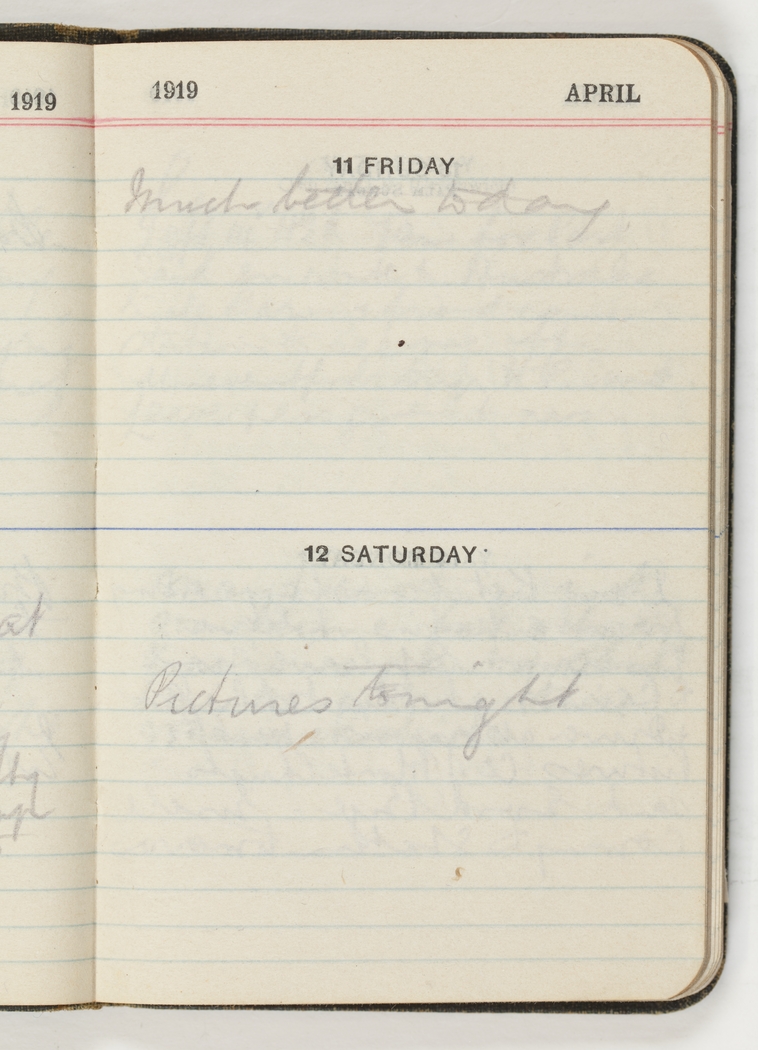 1919
at
1919 APRIL
11 FRIDAY
Much better today
12 SATURDAY
Pictures tonight